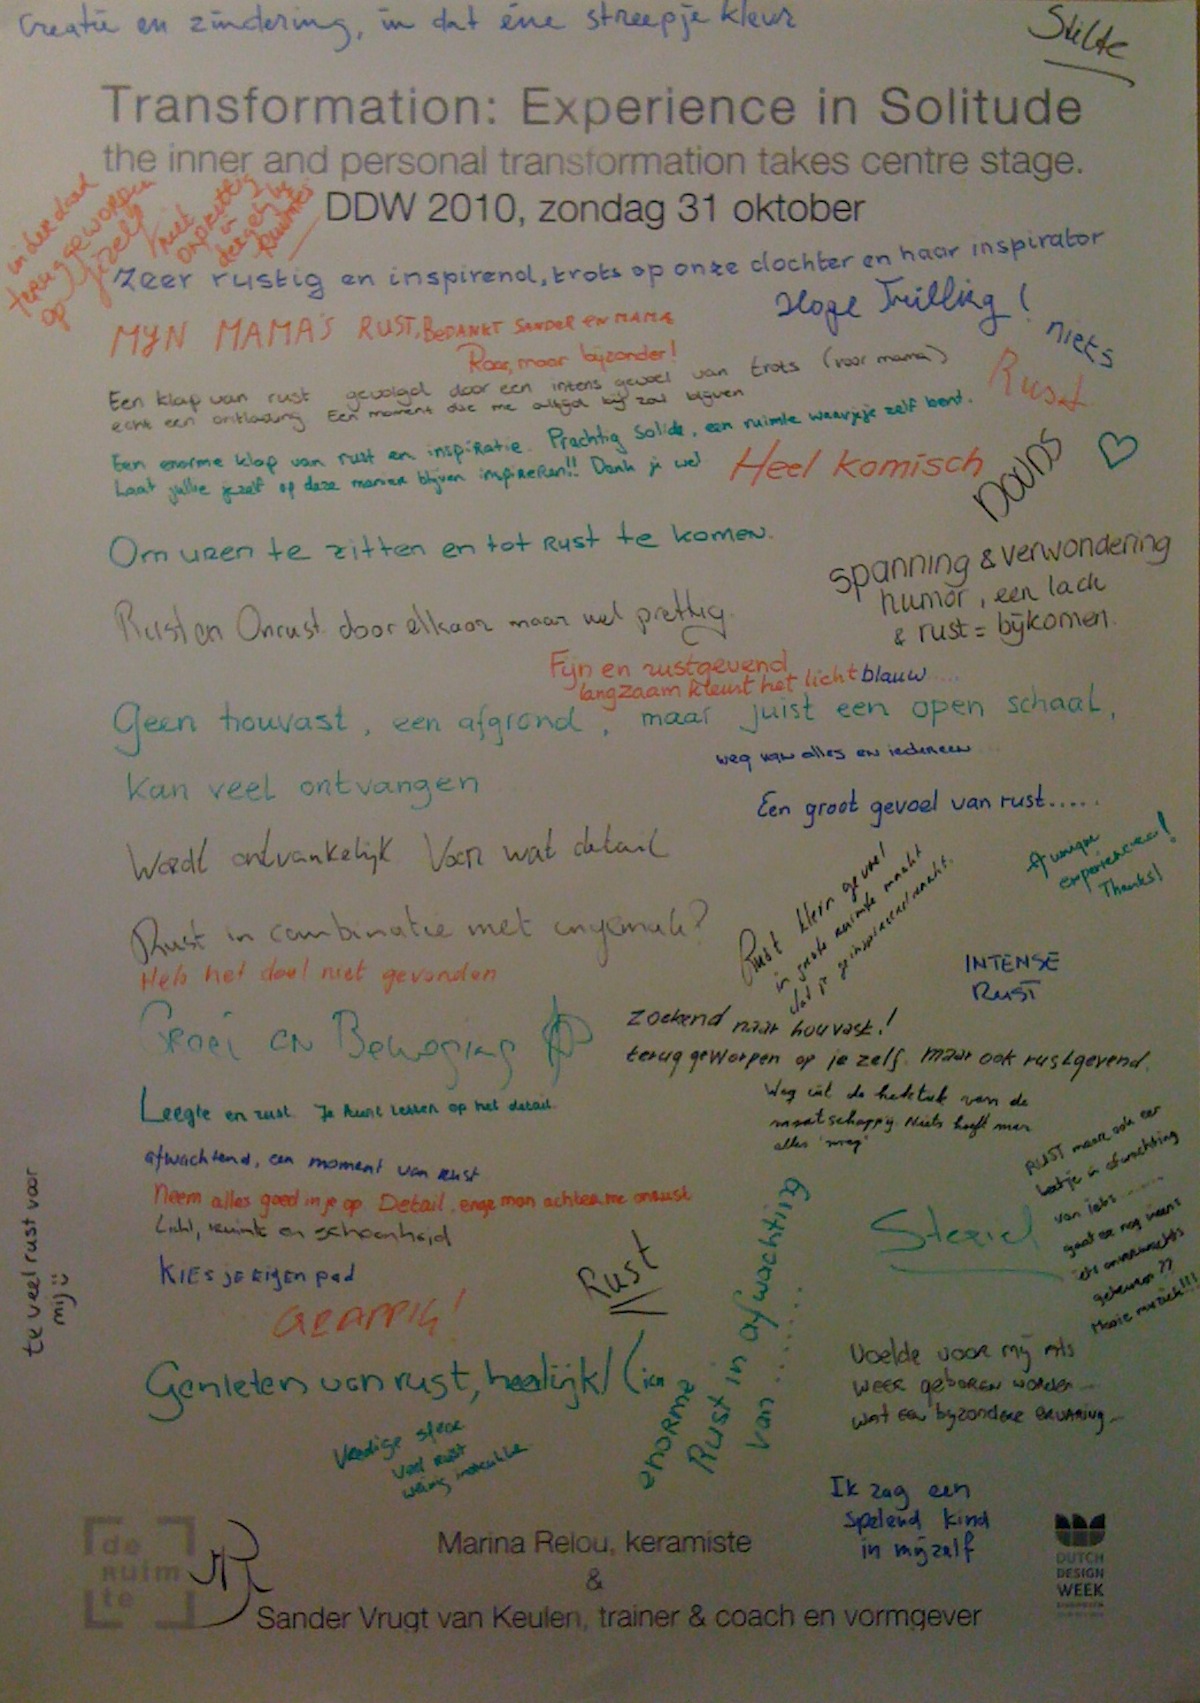 Creatie en zindering, in dat éne streepje kleur
Stilte
Transformation: Experience in Solitude
the inner and personal transformation takes centre stage.
DDW 2010, zondag 31 oktober
inderdaad
teruggeworpen
op jezelf
Zeer rustig en inspirend, trots op onze dochter en haar inspirator
Hoge Trilling!
niets
MYN MAMA'S RUST, BEDANKT SANDER EN MAMA
Raar, maar bijzonder!
Rust
Een klap van rust gevolgd door een intens gevoel van trots (voor mama)
echt een ontlading Een moment die me altijd bij zal blijven
Een enorme klap van rust en inspiratie. Prachtig Solide, een ruimte waar je je zelf bent.
Laat jullie jezelf op deze manier blijven inspireren!! Dank je wel
Heel komisch
Om uren te zitten en tot rust te komen.
spanning & verwondering
humor, een lach
& rust = bijkomen.
Rust en Onrust door elkaar maar wel prettig.
Fijn en rustgevend
langzaam kleurt het licht blauw.....
Geen houvast, een afgrond, maar juist een open schaal,
weg van alles en iedereen...
kan veel ontvangen
Een groot gevoel van rust.....
Wordt ontvankelijk voor wat detail
A unique
experience!
Thanks!
Rust klein gevoel
in grote ruimte maakt
dat je geïnspireerd raakt.
Rust in combinatie met ongemak?
Heb het doel niet gevonden
INTENSE
RUST
Groei en Beweging
zoekend naar houvast!
teruggeworpen op je zelf. maar ook rustgevend.
Weg uit de hektiek van de
maatschappij. Niets hoeft meer
alles 'mag'
Leegte en rust. Je kunt letten op het detail.
afwachtend, een moment van rust
Neem alles goed in je op. Detail. enge man achter me onrust
Licht, ruimte en schoonheid
Kies je eigen pad
GRAPPIG!
RUST maar ook een
beetje in afwachting
van iets.......
gaat er nog ineens
iets onverwachts
gebeuren ??
Mooie muziek!!!
Steriel
te veel rust voor
mij
Rust
enorme
Rust in afwachting
van.....
Genieten van rust, heerlijk!
Voelde voor mij als
weer geboren worden
wat een bijzondere ervaring
Vredige sfeer
veel rust
weinig
Ik zag een
spelend kind
in mijzelf
de
RUIM
te
Marina Relou, keramiste
&
Sander Vrugt van Keulen, trainer & coach en vormgever
DUTCH
DESIGN
WEEK